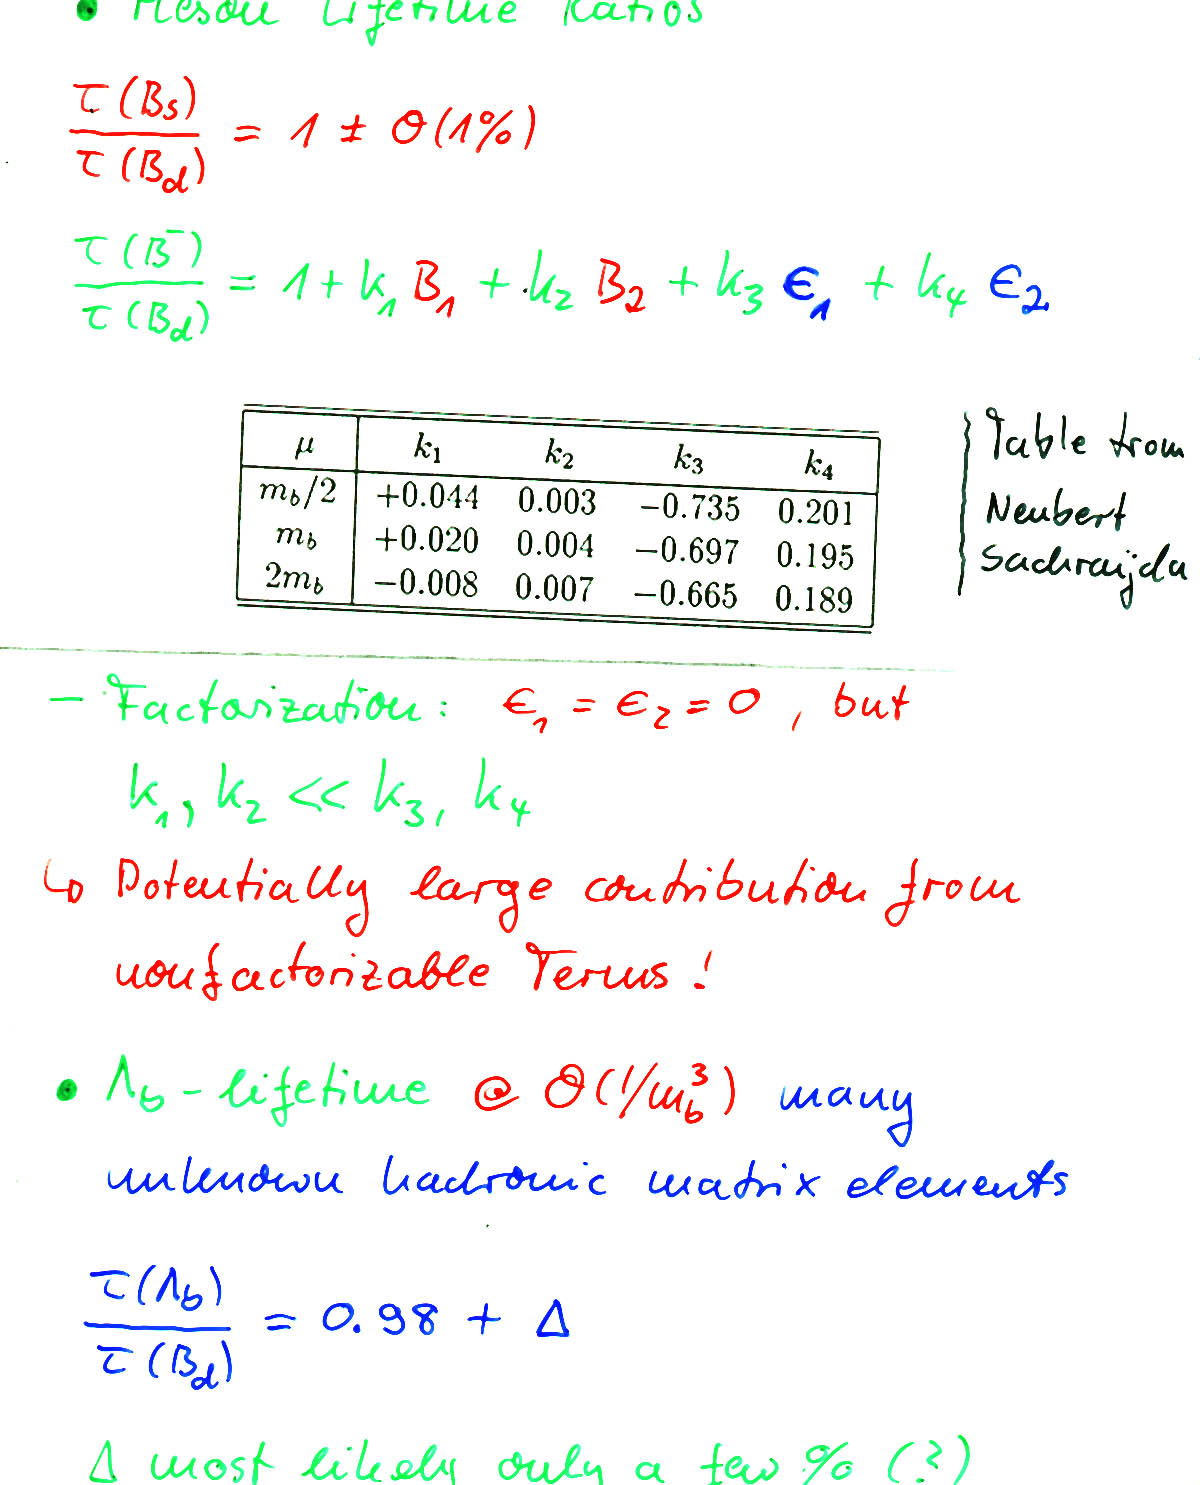 • Meson Lifetime Ratios
τ(Bs)/τ(Bd) = 1 ± O(1%)
τ(B⁻)/τ(Bd) = 1 + k₁ B₁ + k₂ B₂ + k₃ ϵ₁ + k₄ ϵ₂
μ k₁ k₂ k₃ k₄
m_b/2 +0.044 0.003 −0.735 0.201
m_b +0.020 0.004 −0.697 0.195
2m_b −0.008 0.007 −0.665 0.189
Table from
Neubert
Sachrajda
– Factorization: ϵ₁ = ϵ₂ = 0, but
k₁, k₂ << k₃, k₄
↳ Potentially large contribution from
nonfactorizable Terms!
• Λb-lifetime @ O(1/m_b³) many
unknown hadronic matrix elements
τ(Λb)/τ(Bd) = 0.98 + Δ
Δ most likely only a few % (?)